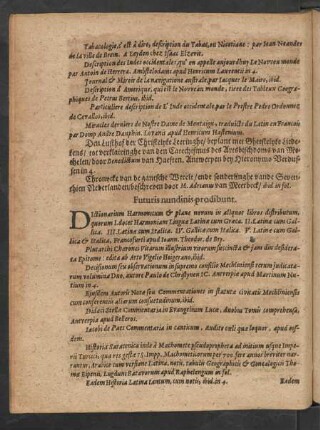 Tabacologia, c'est à dire, description du Tabac, ou Nicotiane : par Iean Neander
de la ville de Brem. à Leyden chez Isaac Elzevir.
Description des Indes occidentales, qu'on appelle aujourd'huy Le Noveau monde
par Antoin de Herrera. Amstelredami apud Henricum Laurentii in 4.
Journal & Miroir de la navigation australe par Jacques le Maire, ibid.
Description d'Amerique, qui est le Noveau monde, tirée des Tableaux Geographiques
de Petrus Bertius. ibid.
Particuliere description de l'Inde occidentale par le Prestre Pedro Ordonnez
de Cevallos, ibid.
Miracles derniers de Nostre Dame de Montaigu, traduicts du Latin en Francois
par Domp Andre Dauphin. Lovanii apud Henricum Hastenium.
Den Lusthof der Christelijcke Leeringhe, beplant met Gheestelijcke Liedekens,
tot verklaringhe van den Catechismus des Artsbischdoms van Mechelen,
door Benedictum van Haeften. Antwerpen bey Hieronymus Verdussen
in 4.
Chronycke van de gantsche Werelt, ende sonderlinghe vande Seventhien
Nederlanden beschreven door M. Adrianus van Meerbeeck, ibid. in fol.
Futuris nundinis prodibunt.
Dictionarium Harmonicum & plane novum in aliquot libros distributum,
quorum I. docet Harmoniam Linguæ Latinæ cum Græca. II. Latinæ cum Gallica.
III. Latinæ cum Italica. IV. Gallicæ cum Italica. V. Latinæ cum Gallica
& Italica, Francofurti apud Ioann. Theodor. de Bry.
Plutarchi Chæronei Vitarum illustrium virorum succincta & jam diu desiderata
Epitome : edita ab Arte Vigelio Buigereano, ibid.
Decisionum seu observationum in supremo consilio Mechliniensi rerum judicatarum
volumina Duo, autore Paulo de Christynen IC. Antverpiæ apud Martinum Nutium
in 4.
Ejusdem Autoris Nota seu Commentationes in statuta civitatis Mechliniensis
cum conferentia aliarum consuetudinum. ibid.
Didaci Stellæ Commentaria in Evangelium Lucæ, duobus Tomis comprehensa,
Antverpiæ apud Belleros.
Iacobi de Pati Commentaria in canticum, Audite cæli quæ loquor, apud eosdem.
Historia Saracenica inde à Machomete pseudopropheta ad initium usque Imperii
Turcici, qua res gestæ 75. Imp. Machometicorum per 700 fere annos breviter narrantur,
Arabice cum versione Latina, notis, tabulis Geographicis & Genealogicis Thomæ
Erpenii, Lugduni Batavorum apud Raphelengium in fol.
Eadem Historia Latina tantum, cum notis, ibid. in 4.
Eadem